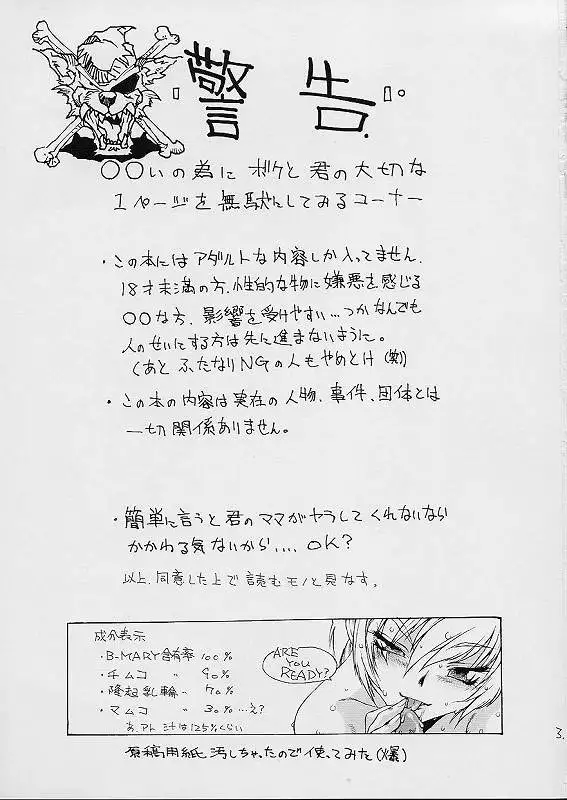 警告。
○○いの為にボクと君の大切な
1ページを無駄にしてみるコーナー
・この本にはアダルトな内容しか入ってません。
18才未満の方、性的な物に嫌悪を感じる
○○な方、影響を受けやすい…つかなんでも
人のせいにする方は先に進まないように。
(あと ふたなりNGの人もやめとけ(笑)
・この本の内容は実在の人物、事件、団体とは
一切関係ありません。
・簡単に言うと君のママがヤラしてくれないなら
かかわる気ないから.... OK?
以上、同意した上で読むモノと見なす。
成分表示
・B-MARY含有率 100%
・チムコ 〃 90%
・隆起乳輪 〃 70%
・マムコ 〃 30% …え?
あ、アト 汁は125%くらい
ARE
YOU
READY?
原稿用紙汚しちゃったので使ってみた(爆)
3.